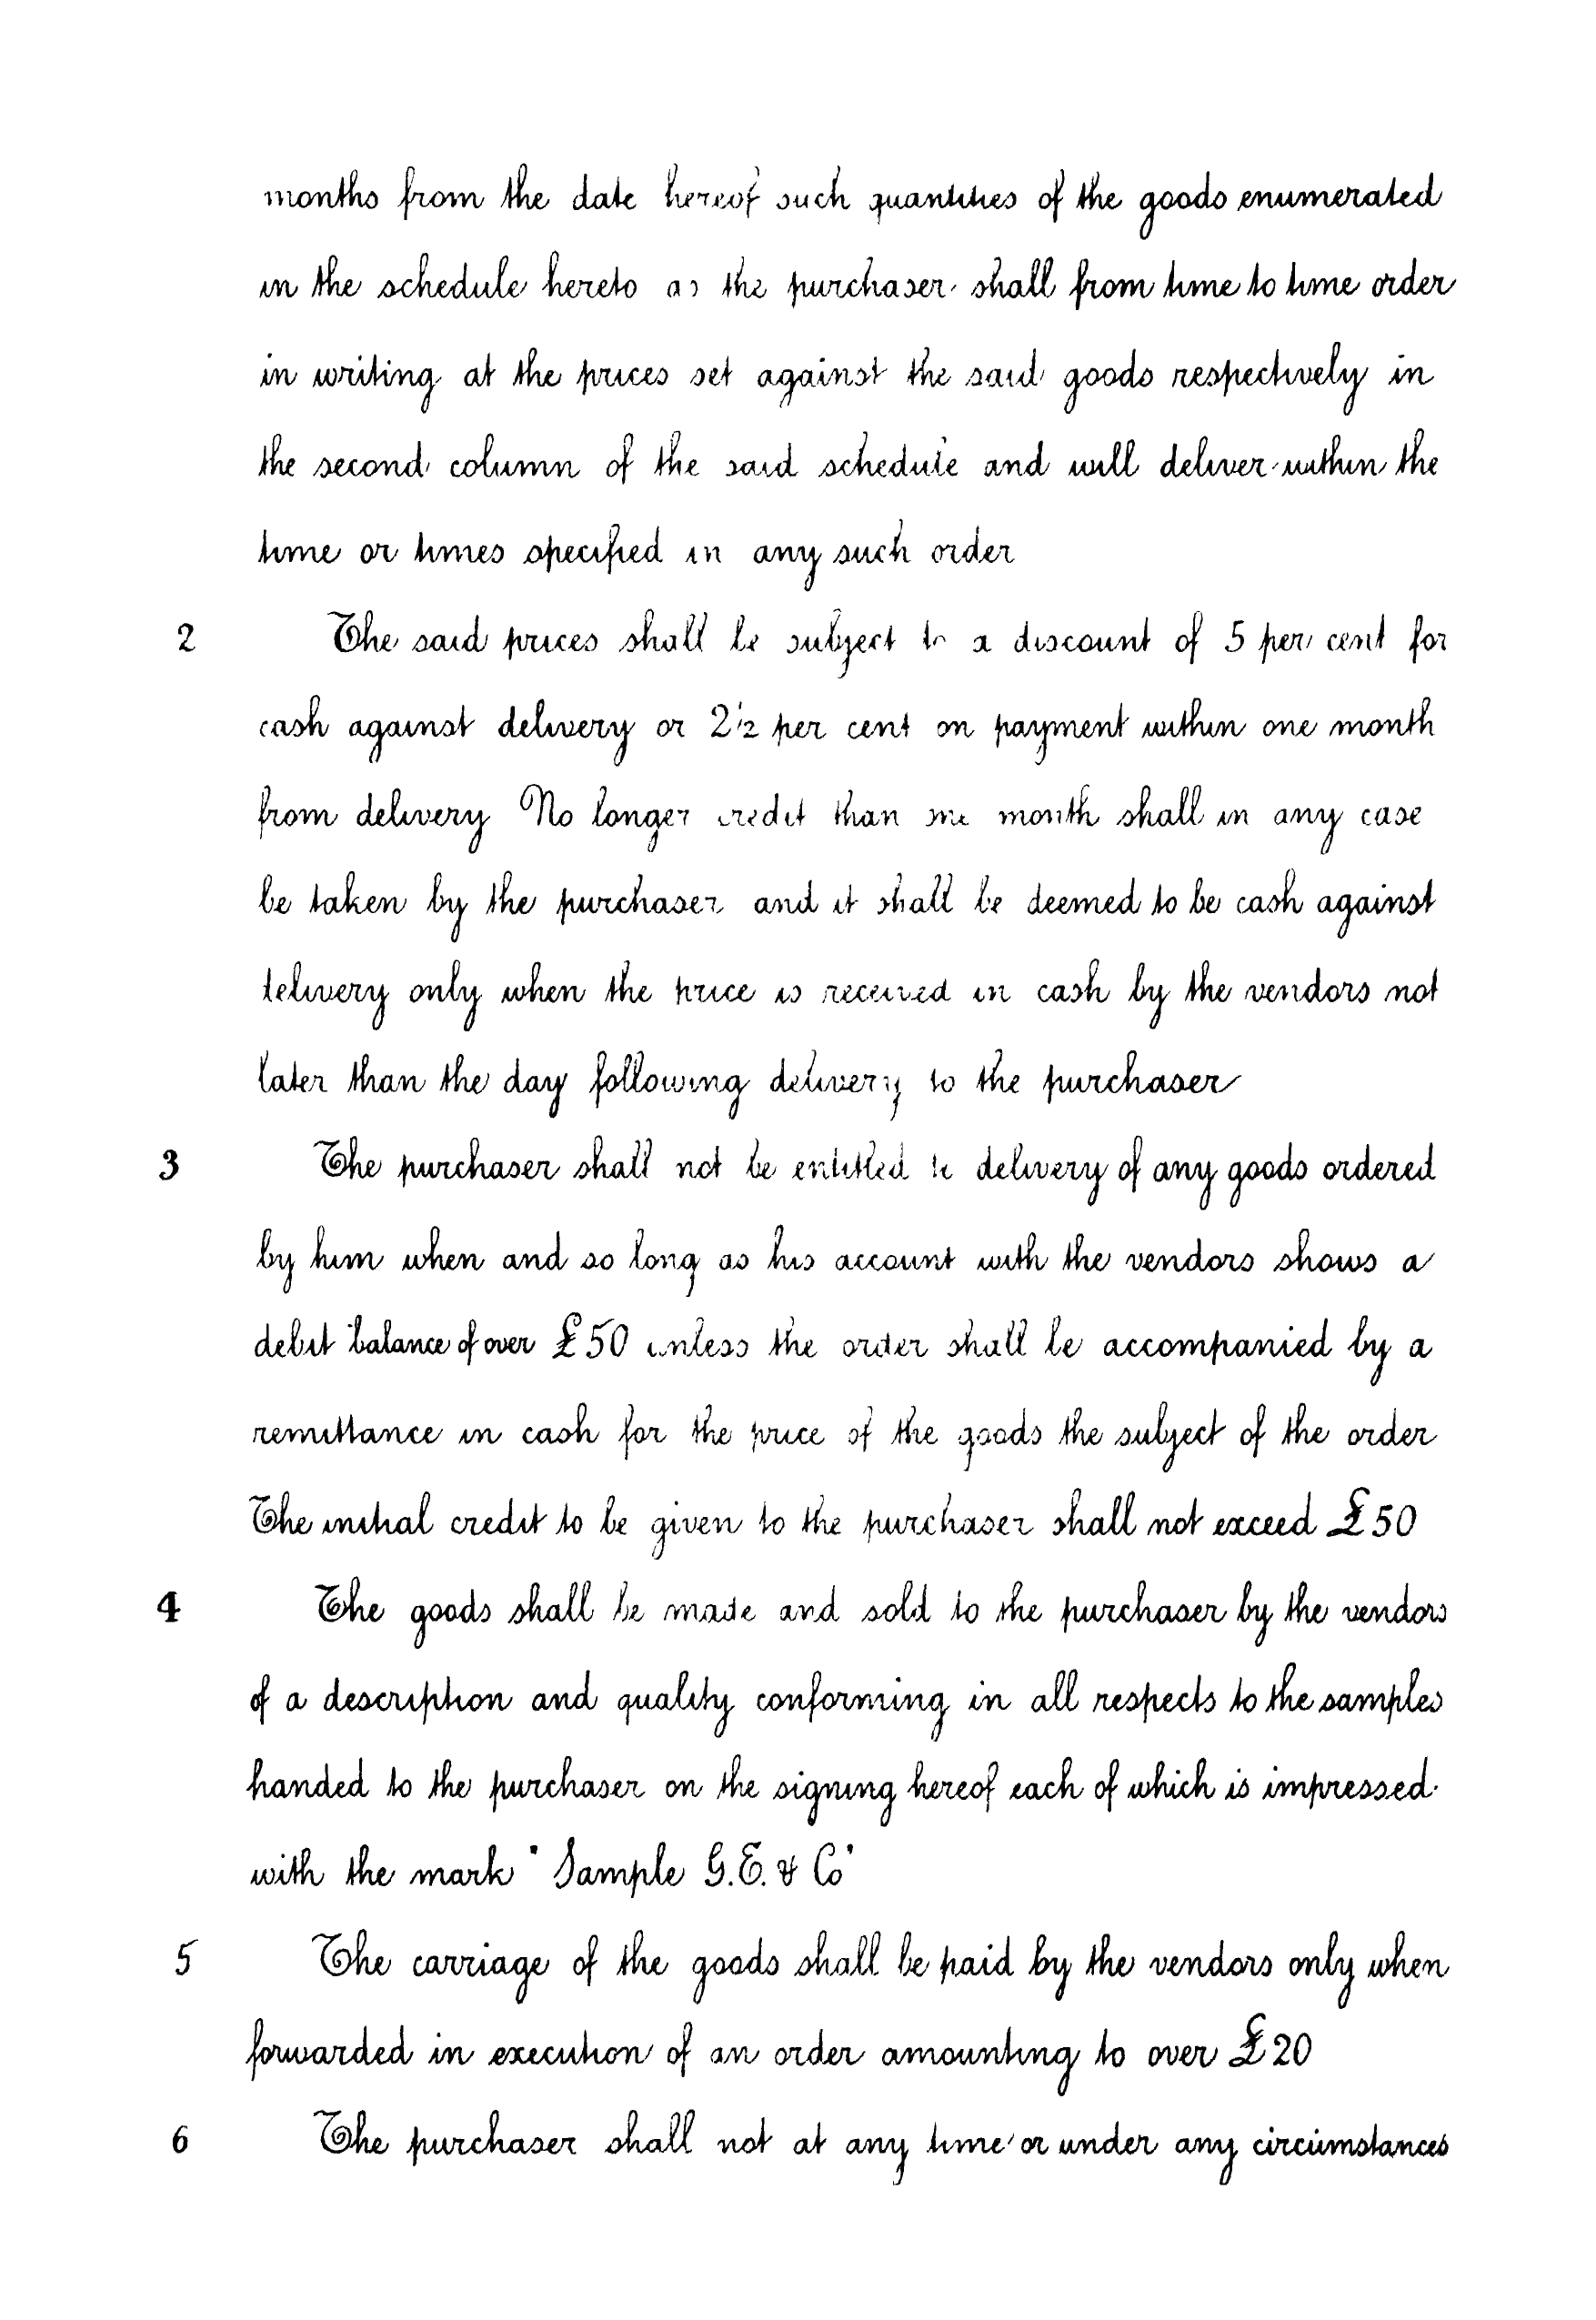 months from the date hereof such quantities of the goods enumerated
in the schedule hereto as the purchaser shall from time to time order
in writing at the prices set against the said goods respectively in
the second column of the said schedule and will deliver within the
time or times specified in any such order
2 The said prices shall be subject to a discount of 5 per cent for
cash against delivery or 2½ per cent on payment within one month
from delivery No longer credit than one month shall in any case
be taken by the purchaser and it shall be deemed to be cash against
delivery only when the price is received in cash by the vendors not
later than the day following delivery to the purchaser
3 The purchaser shall not be entitled to delivery of any goods ordered
by him when and so long as his account with the vendors shows a
debit balance of over £50 unless the order shall be accompanied by a
remittance in cash for the price of the goods the subject of the order
The initial credit to be given to the purchaser shall not exceed £50
4 The goods shall be made and sold to the purchaser by the vendors
of a description and quality conforming in all respects to the samples
handed to the purchaser on the signing hereof each of which is impressed
with the mark "Sample G.E. & Co"
5 The carriage of the goods shall be paid by the vendors only when
forwarded in execution of an order amounting to over £20
6 The purchaser shall not at any time or under any circumstances